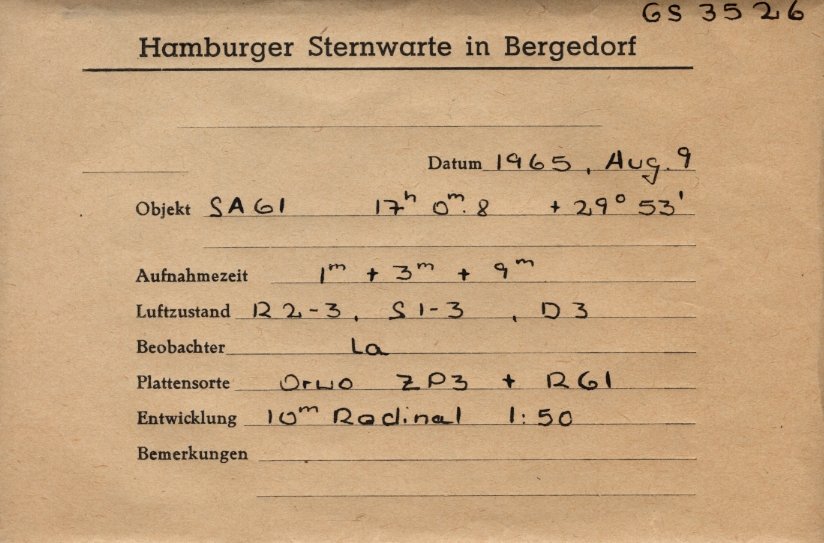 GS 3526
Hamburger Sternwarte in Bergedorf
Datum 1965, Aug. 9
Objekt SA 61 17h 0m.8 + 29° 53'
Aufnahmezeit 1m + 3m + 9m
Luftzustand R 2-3, S 1-3, D 3
Beobachter La
Plattensorte Orwo ZP3 + RG1
Entwicklung 10m Rodinal 1:50
Bemerkungen